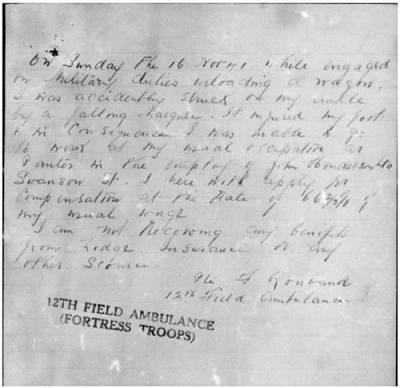 On Sunday the 16 Nov 41 while engaged
on Military duties unloading a wagon,
I was accidently struck on my ankle
by a falling . It injured my foot
& in consequence I was unable to go
to work at my usual occupation as
Painter in the employ of John
Swanson St. I here with apply for
Compensation at the Rate of 66⅔% of
my usual wage
I am not Receiving any benefits
from Lodge Insurance or any
other Source
Pte F
12th Field Ambulance
12TH FIELD AMBULANCE
(FORTRESS TROOPS)